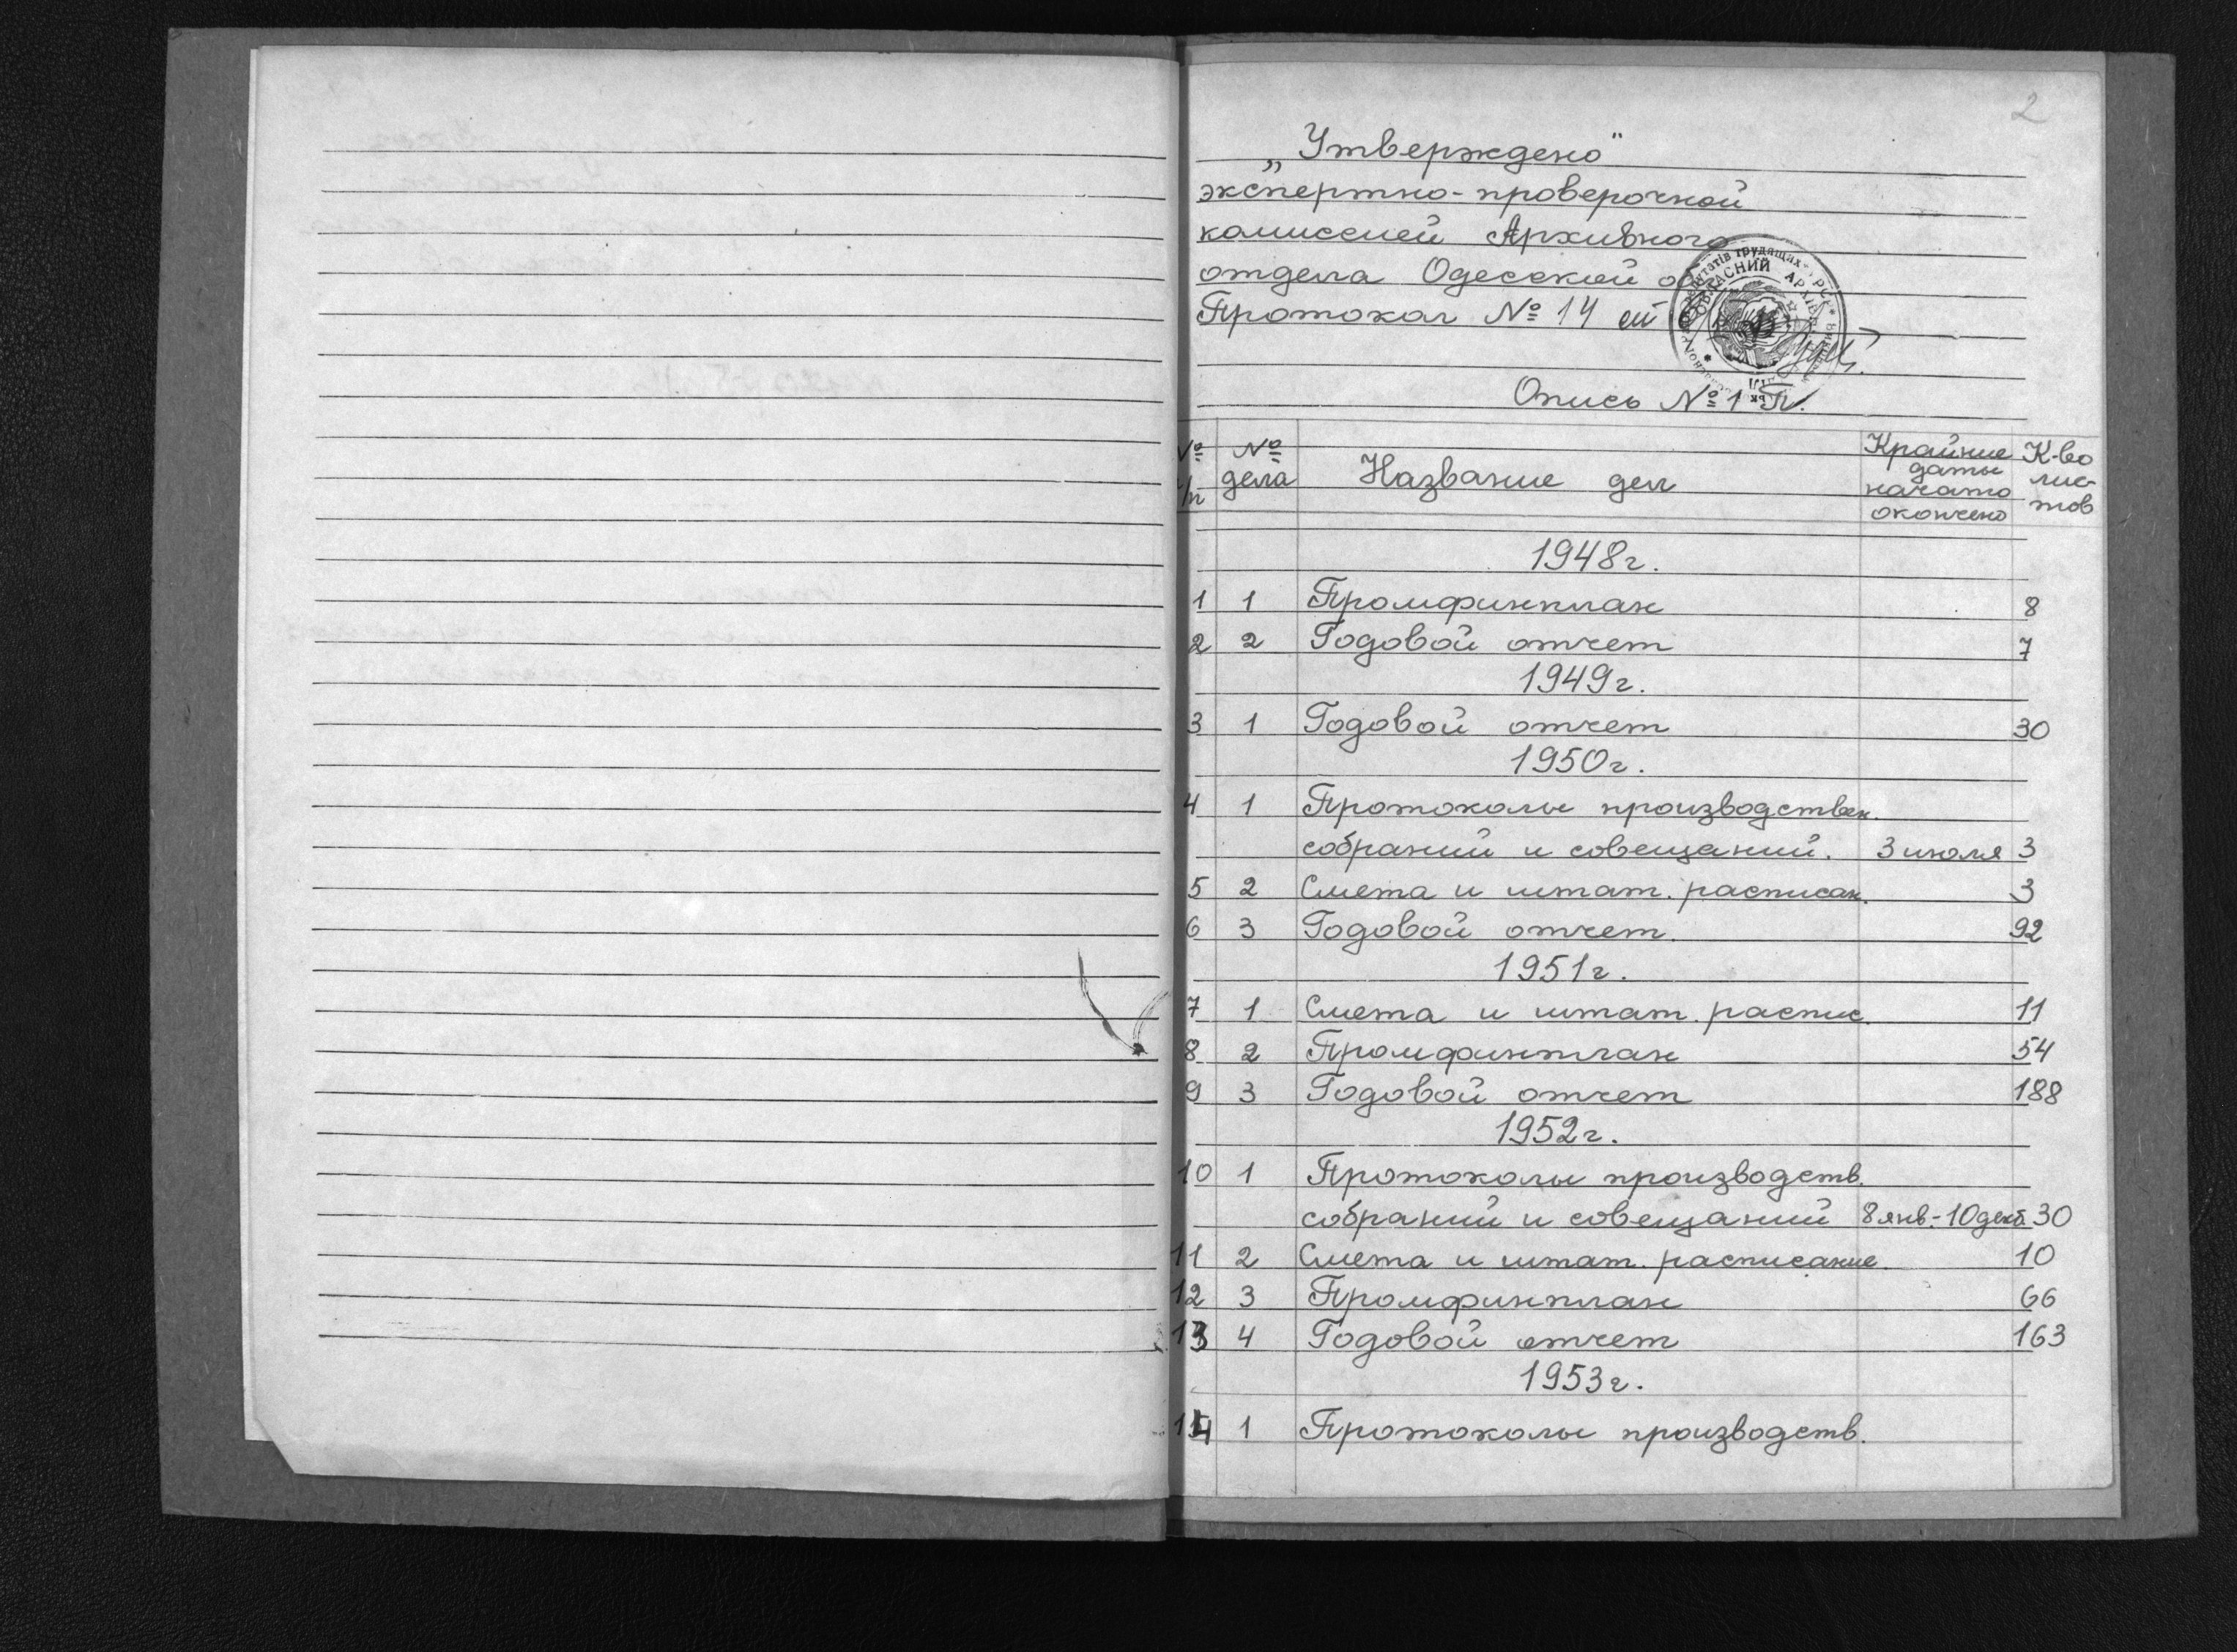 2
„Утверждено"
экспертно-проверочной
комиссией Архивного
отдела Одесской
Протокол № 14 от
трудящих
ОБЛАСНИЙ АРХІВ
Опись № 1 П.
№ п/п № дела Название дел Крайние даты начато окончено К-во листов
1948г.
1 1 Промфинплан 8
2 2 Годовой отчет 7
1949г.
3 1 Годовой отчет 30
1950г.
4 1 Протоколы производствен.
собраний и совещаний. 3 июля 3
5 2 Смета и штат. расписан. 3
6 3 Годовой отчет. 92
1951г.
7 1 Смета и штат. распис. 11
8 2 Промфинплан 54
9 3 Годовой отчет 188
1952г.
10 1 Протоколы производств.
собраний и совещаний 8 янв.-10 декб 30
11 2 Смета и штат. расписание. 10
12 3 Промфинплан 66
13 4 Годовой отчет 163
1953г.
14 1 Протоколы производств.